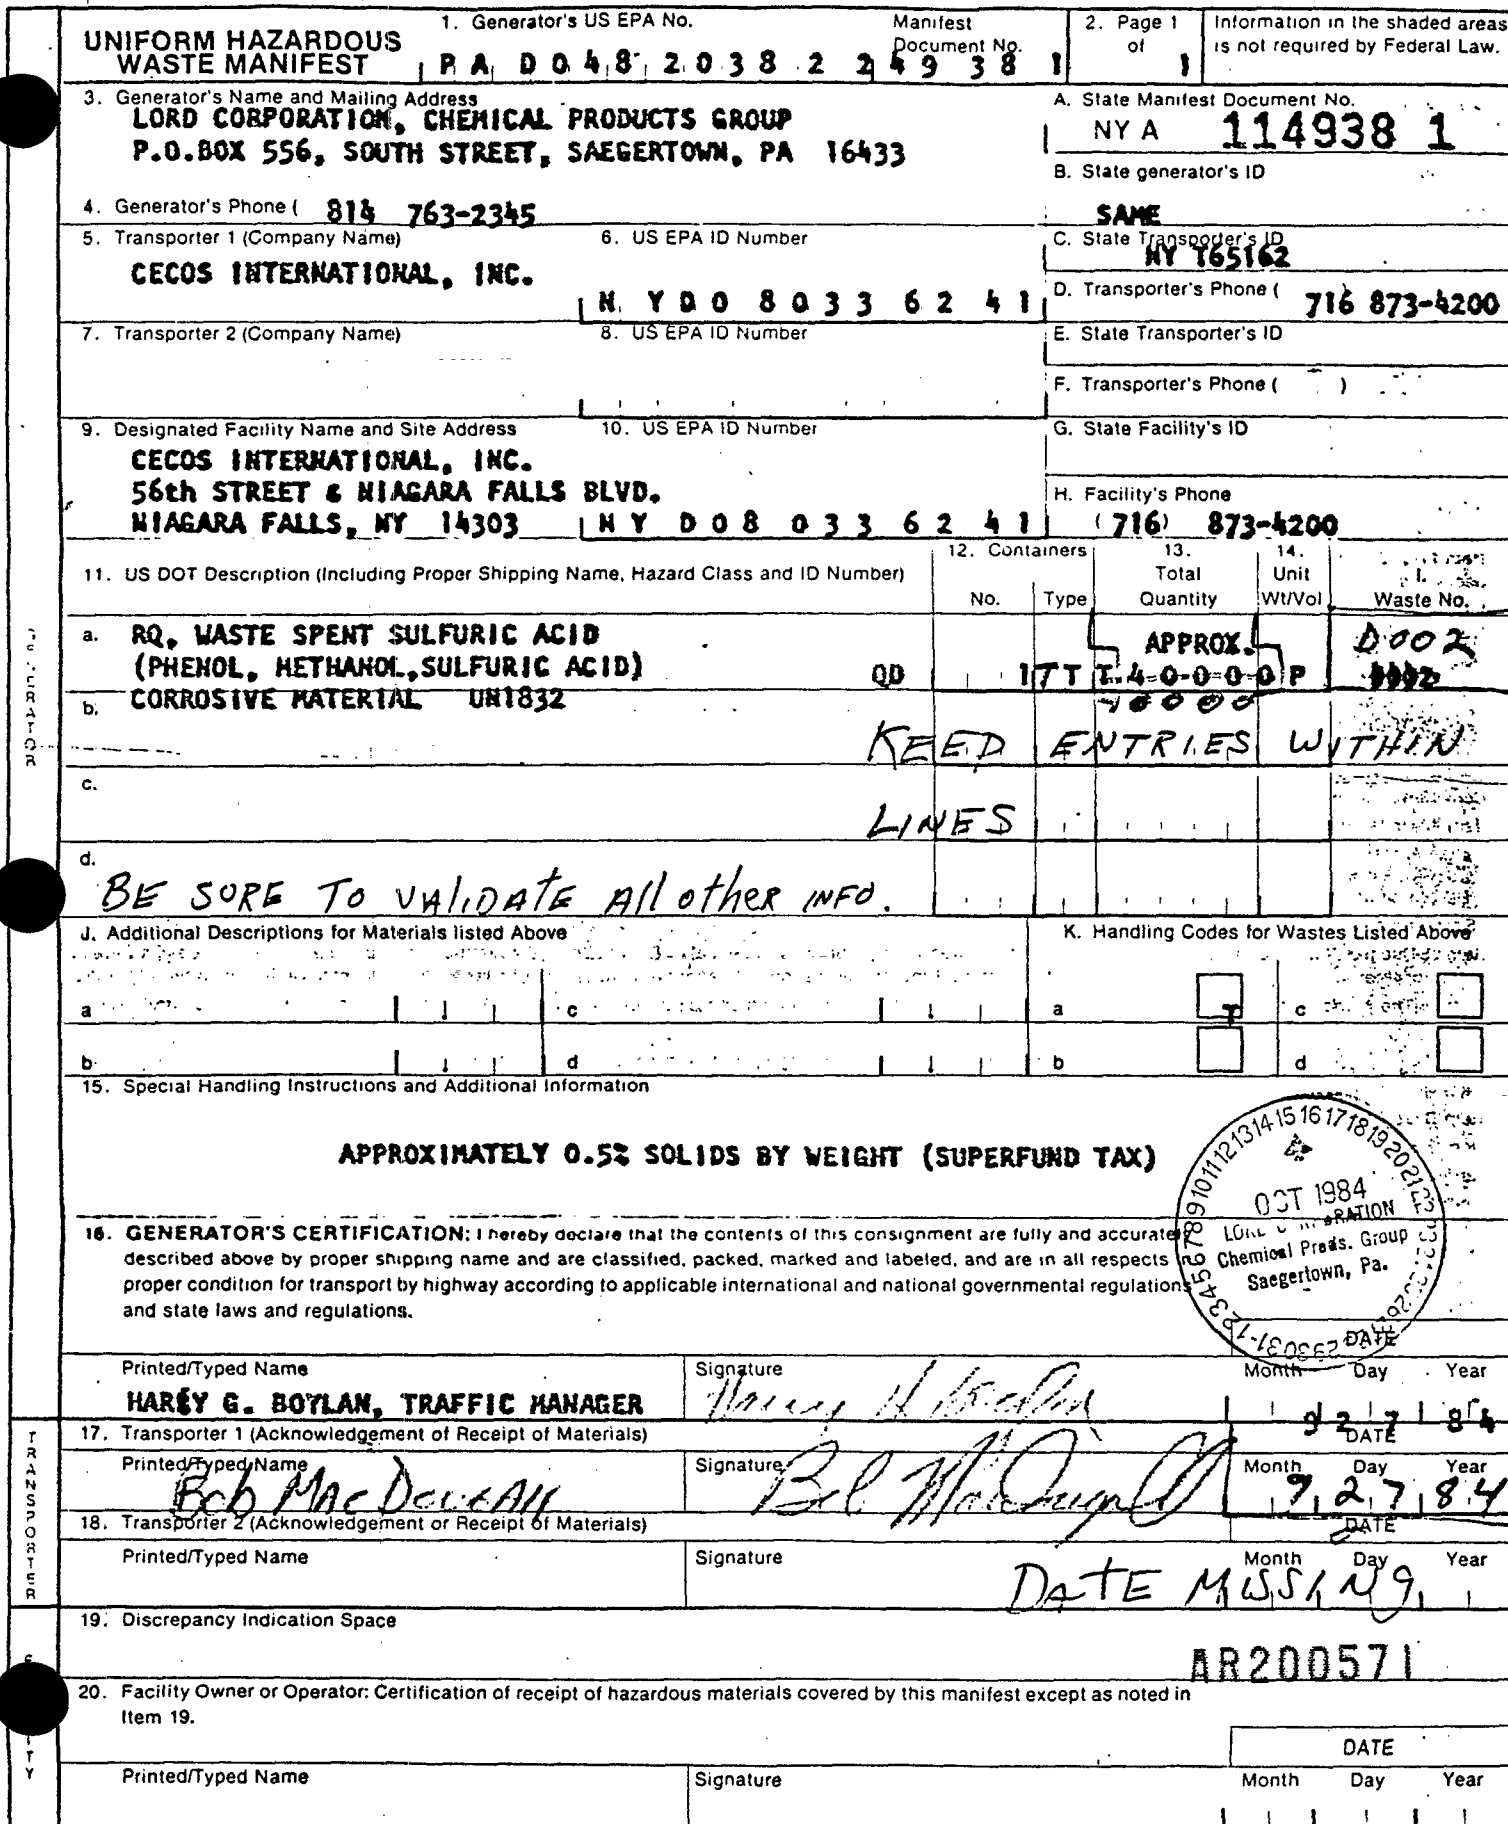 UNIFORM HAZARDOUS
WASTE MANIFEST
1. Generator's US EPA No.
P A D 0 4 8 2 0 3 8 2 2
Manifest
Document No.
4 9 3 8 1
2. Page 1
of 1
Information in the shaded areas
is not required by Federal Law.
3. Generator's Name and Mailing Address
LORD CORPORATION, CHEMICAL PRODUCTS GROUP
P.O.BOX 556, SOUTH STREET, SAEGERTOWN, PA 16433
A. State Manifest Document No.
NY A 114938 1
B. State generator's ID
SAME
4. Generator's Phone ( 814 763-2345
5. Transporter 1 (Company Name)
CECOS INTERNATIONAL, INC.
6. US EPA ID Number
N Y D 0 8 0 3 3 6 2 4 1
C. State Transporter's ID
NY T65162
D. Transporter's Phone ( 716 873-4200
7. Transporter 2 (Company Name)
8. US EPA ID Number
E. State Transporter's ID
F. Transporter's Phone ( )
9. Designated Facility Name and Site Address
CECOS INTERNATIONAL, INC.
56th STREET & NIAGARA FALLS BLVD.
NIAGARA FALLS, NY 14303
10. US EPA ID Number
N Y D 0 8 0 3 3 6 2 4 1
G. State Facility's ID
H. Facility's Phone
(716) 873-4200
11. US DOT Description (Including Proper Shipping Name, Hazard Class and ID Number)
12. Containers
No. Type
13.
Total
Quantity
14.
Unit
Wt/Vol
I.
Waste No.
a. RQ, WASTE SPENT SULFURIC ACID
(PHENOL, METHANOL, SULFURIC ACID)
CORROSIVE MATERIAL UN1832
QD 1 T T
APPROX.
4-0-0-0-0 P
40000
D002
b.
KEEP ENTRIES WITHIN
c.
LINES
d.
BE SURE TO VALIDATE All other INFO.
J. Additional Descriptions for Materials listed Above
K. Handling Codes for Wastes Listed Above
a c a T c
b d b d
15. Special Handling Instructions and Additional Information
APPROXIMATELY 0.5% SOLIDS BY WEIGHT (SUPERFUND TAX)
OCT 1984
Chemical Prods. Group
Saegertown, Pa.
16. GENERATOR'S CERTIFICATION: I hereby declare that the contents of this consignment are fully and accurately
described above by proper shipping name and are classified, packed, marked and labeled, and are in all respects
proper condition for transport by highway according to applicable international and national governmental regulations
and state laws and regulations.
DATE
Printed/Typed Name
HARRY G. BOYLAN, TRAFFIC MANAGER
Signature
Month Day Year
9 2 7 8 4
17. Transporter 1 (Acknowledgement of Receipt of Materials)
DATE
Printed/Typed Name
Bob
Signature
Month Day Year
9 2 7 8 4
18. Transporter 2 (Acknowledgement or Receipt of Materials)
DATE
Printed/Typed Name
Signature
Month Day Year
DATE MISSING
19. Discrepancy Indication Space
AR200571
20. Facility Owner or Operator: Certification of receipt of hazardous materials covered by this manifest except as noted in
Item 19.
DATE
Printed/Typed Name
Signature
Month Day Year
TRANSPORTER